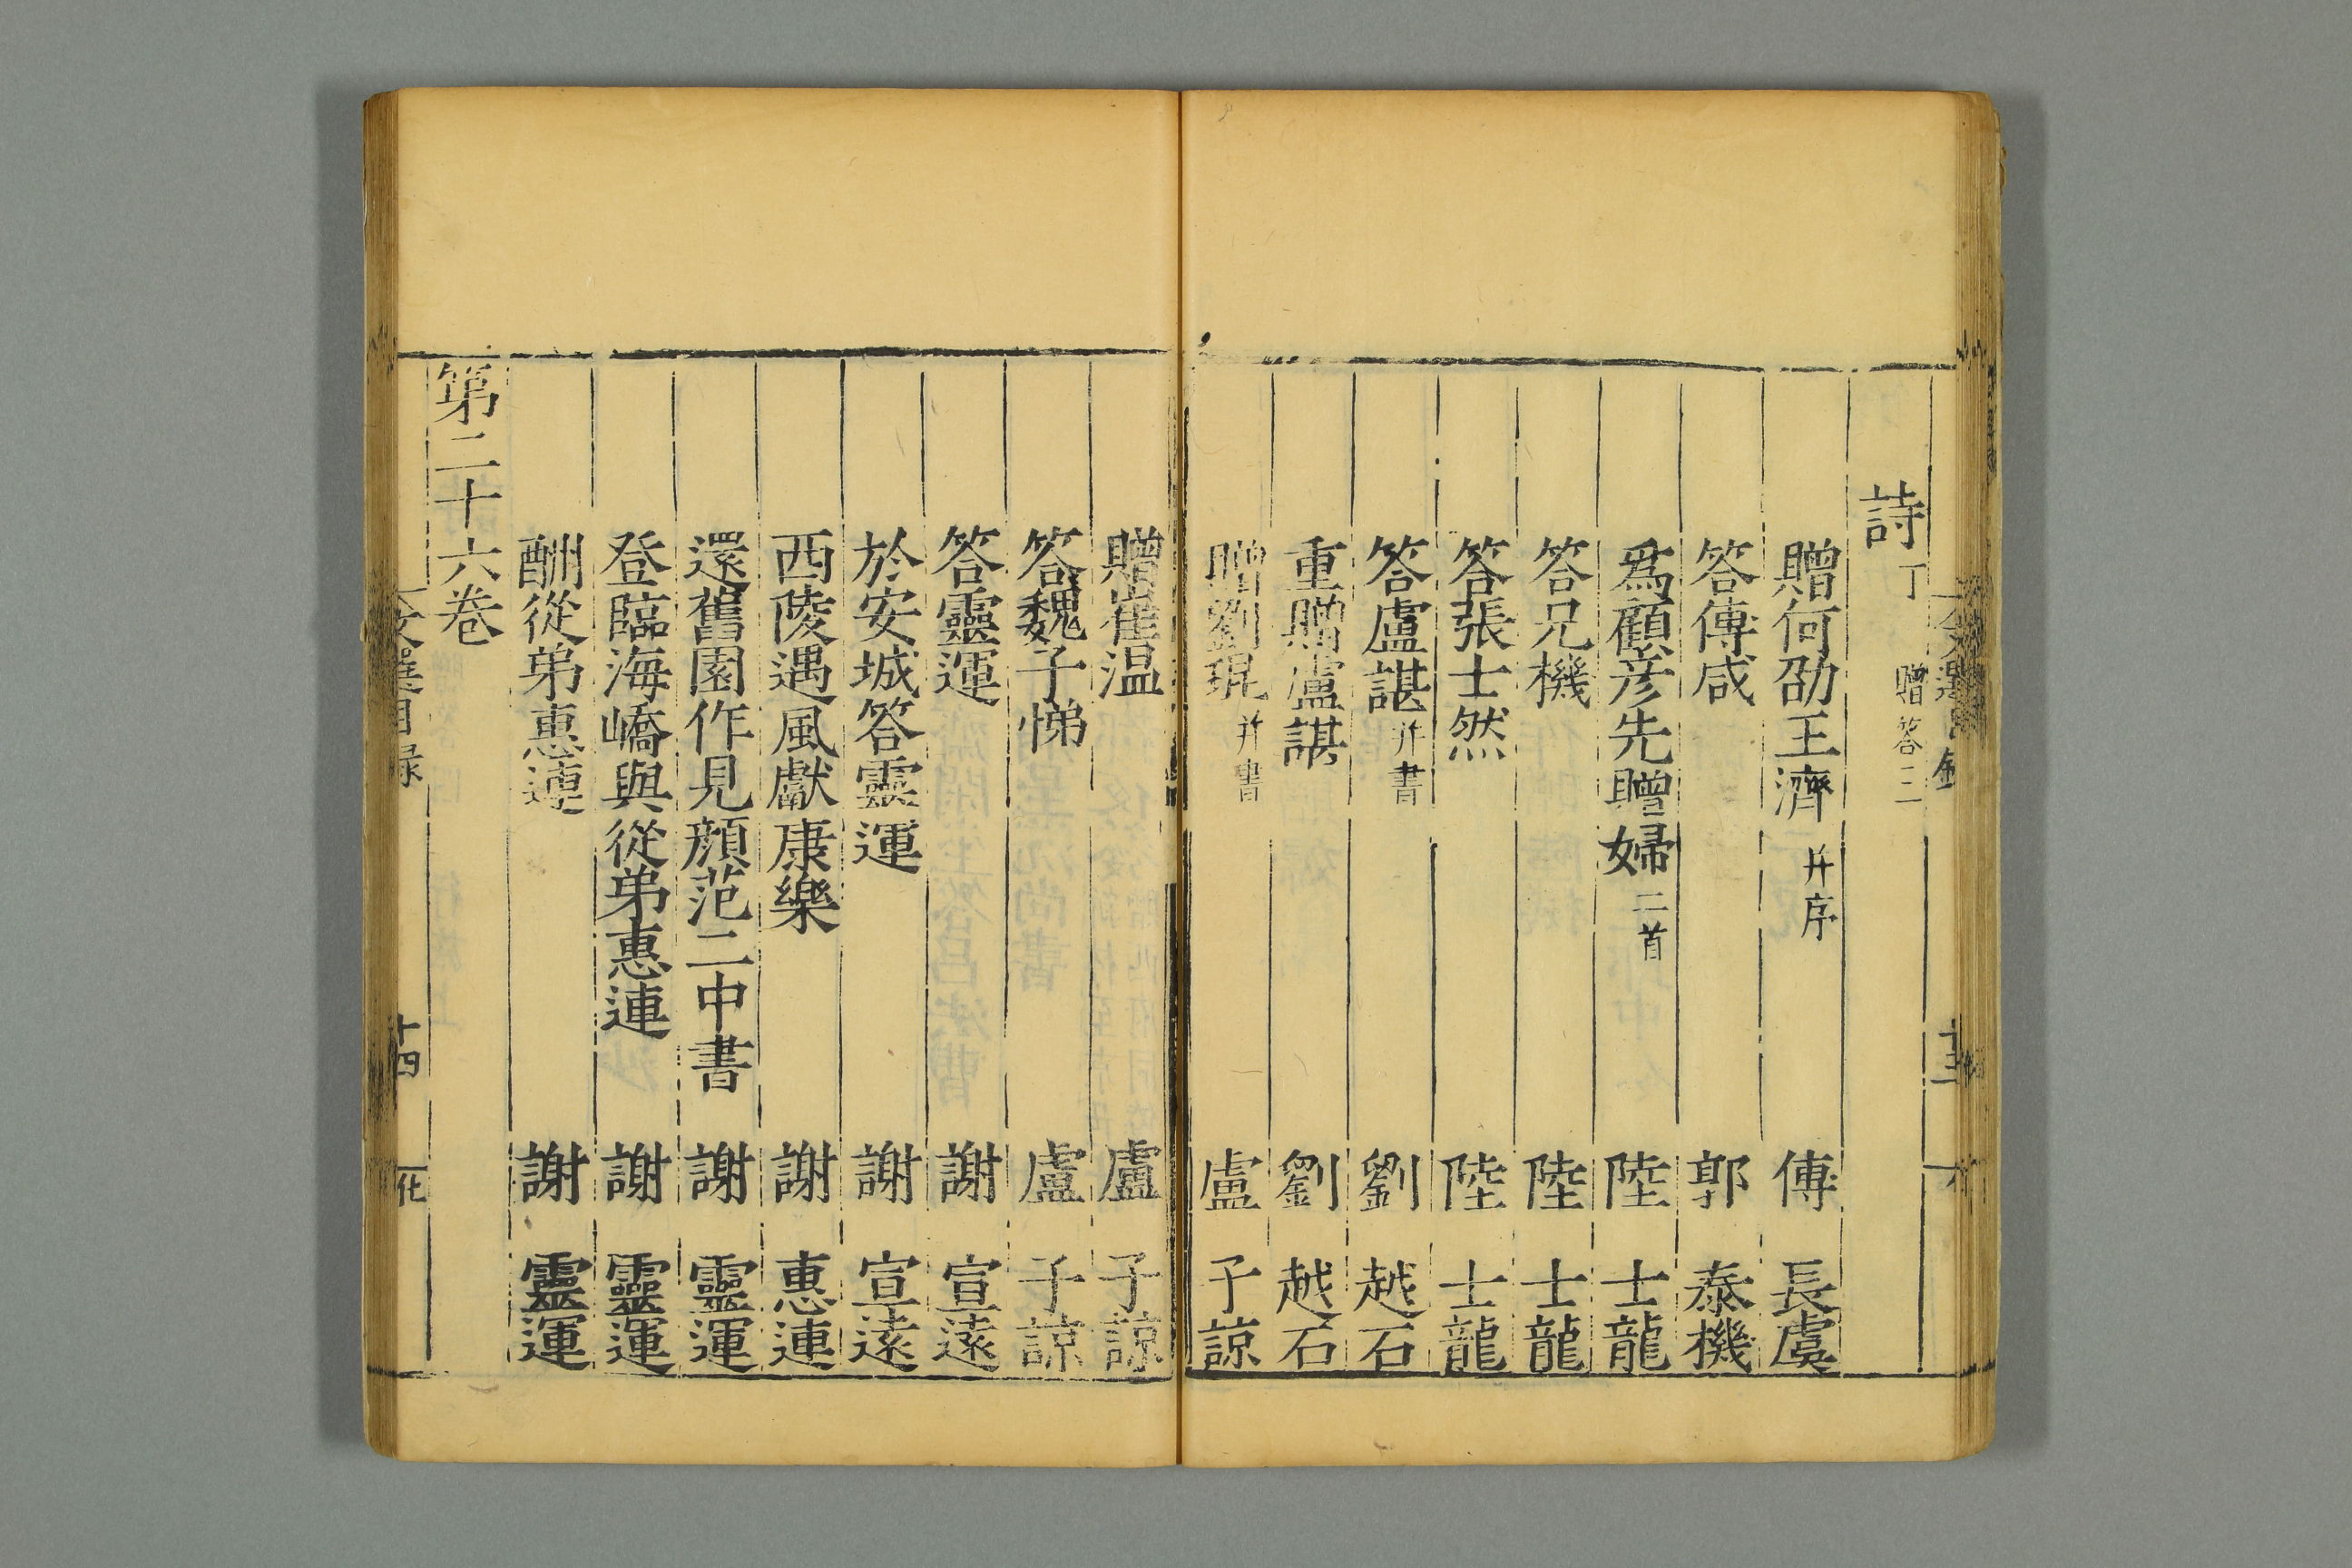 詩丁 贈答三
贈何劭王濟 并序 傅長虞
答傅咸 郭泰機
爲顧彦先贈婦 二首 陸士龍
答兄機 陸士龍
答張士然 陸士龍
答盧諶 并書 劉越石
重贈盧諶 劉越石
贈劉琨 并書 盧子諒
贈崔温 盧子諒
答魏子悌 盧子諒
答靈運 謝宣遠
於安城答靈運 謝宣遠
西陵遇風獻康樂 謝惠連
還舊園作見顔范二中書 謝靈運
登臨海嶠與從弟惠連 謝靈運
酬從弟惠連 謝靈運
第二十六卷
文選目録 十四